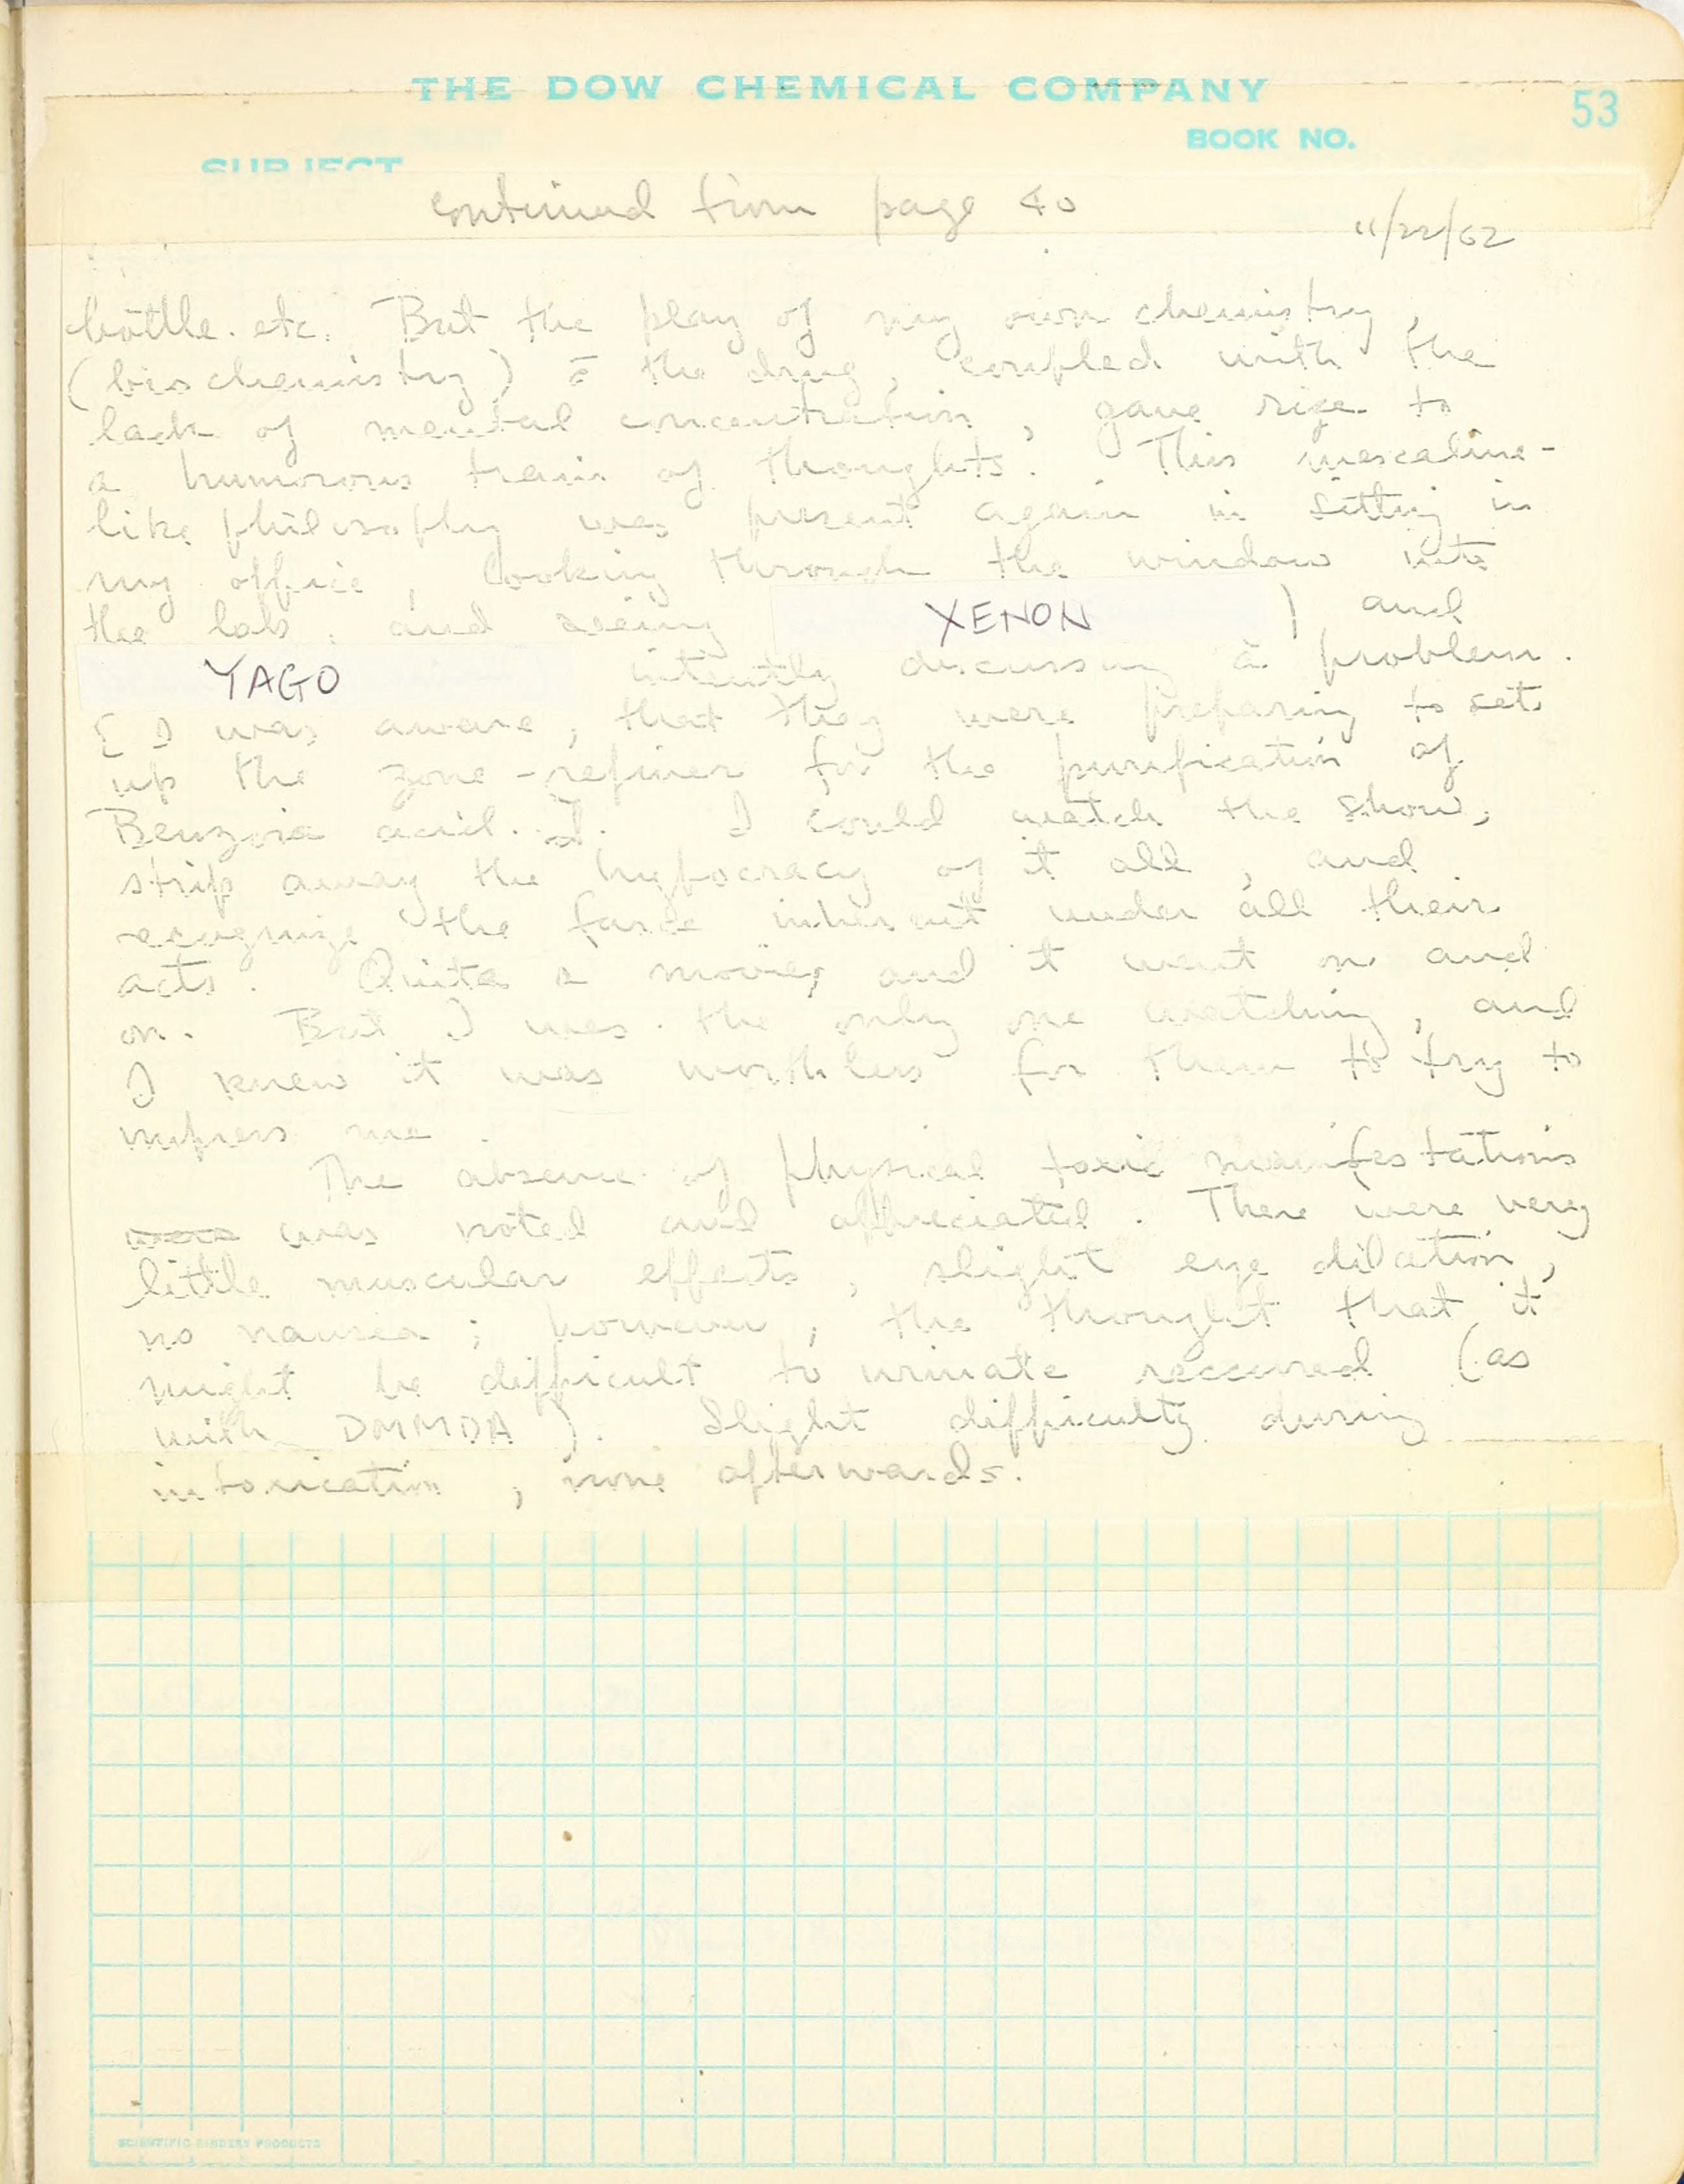 THE DOW CHEMICAL COMPANY
53
BOOK NO.
SUBJECT
continued from page 40
11/22/62
bottle. etc. But the play of my own chemistry,
(biochemistry) c̄ the drug, coupled with the
lack of mental concentration, gave rise to
a humorous train of thoughts. This mescaline-
like philosophy was present again in sitting in
my office, looking through the window into
the lab, and seeing XENON ) and
YAGO intently discussing a problem.
[ I was aware, that they were preparing to set
up the zone-refiner for the purification of
Benzoic acid. ]. I could watch the show,
strip away the hypocracy of it all, and
recognize the farce inherent under all their
acts. Quite a movie, and it went on and
on. But I was the only one watching, and
I knew it was worthless for them to try to
impress me.
The absence of physical toxic manifestations
were was noted and appreciated. There were very
little muscular effects, slight eye dilation,
no nausea; however, the thought that it
might be difficult to urinate reccured (as
with DMMDA). Slight difficulty during
intoxication, none afterwards.
SCIENTIFIC BINDERY PRODUCTS